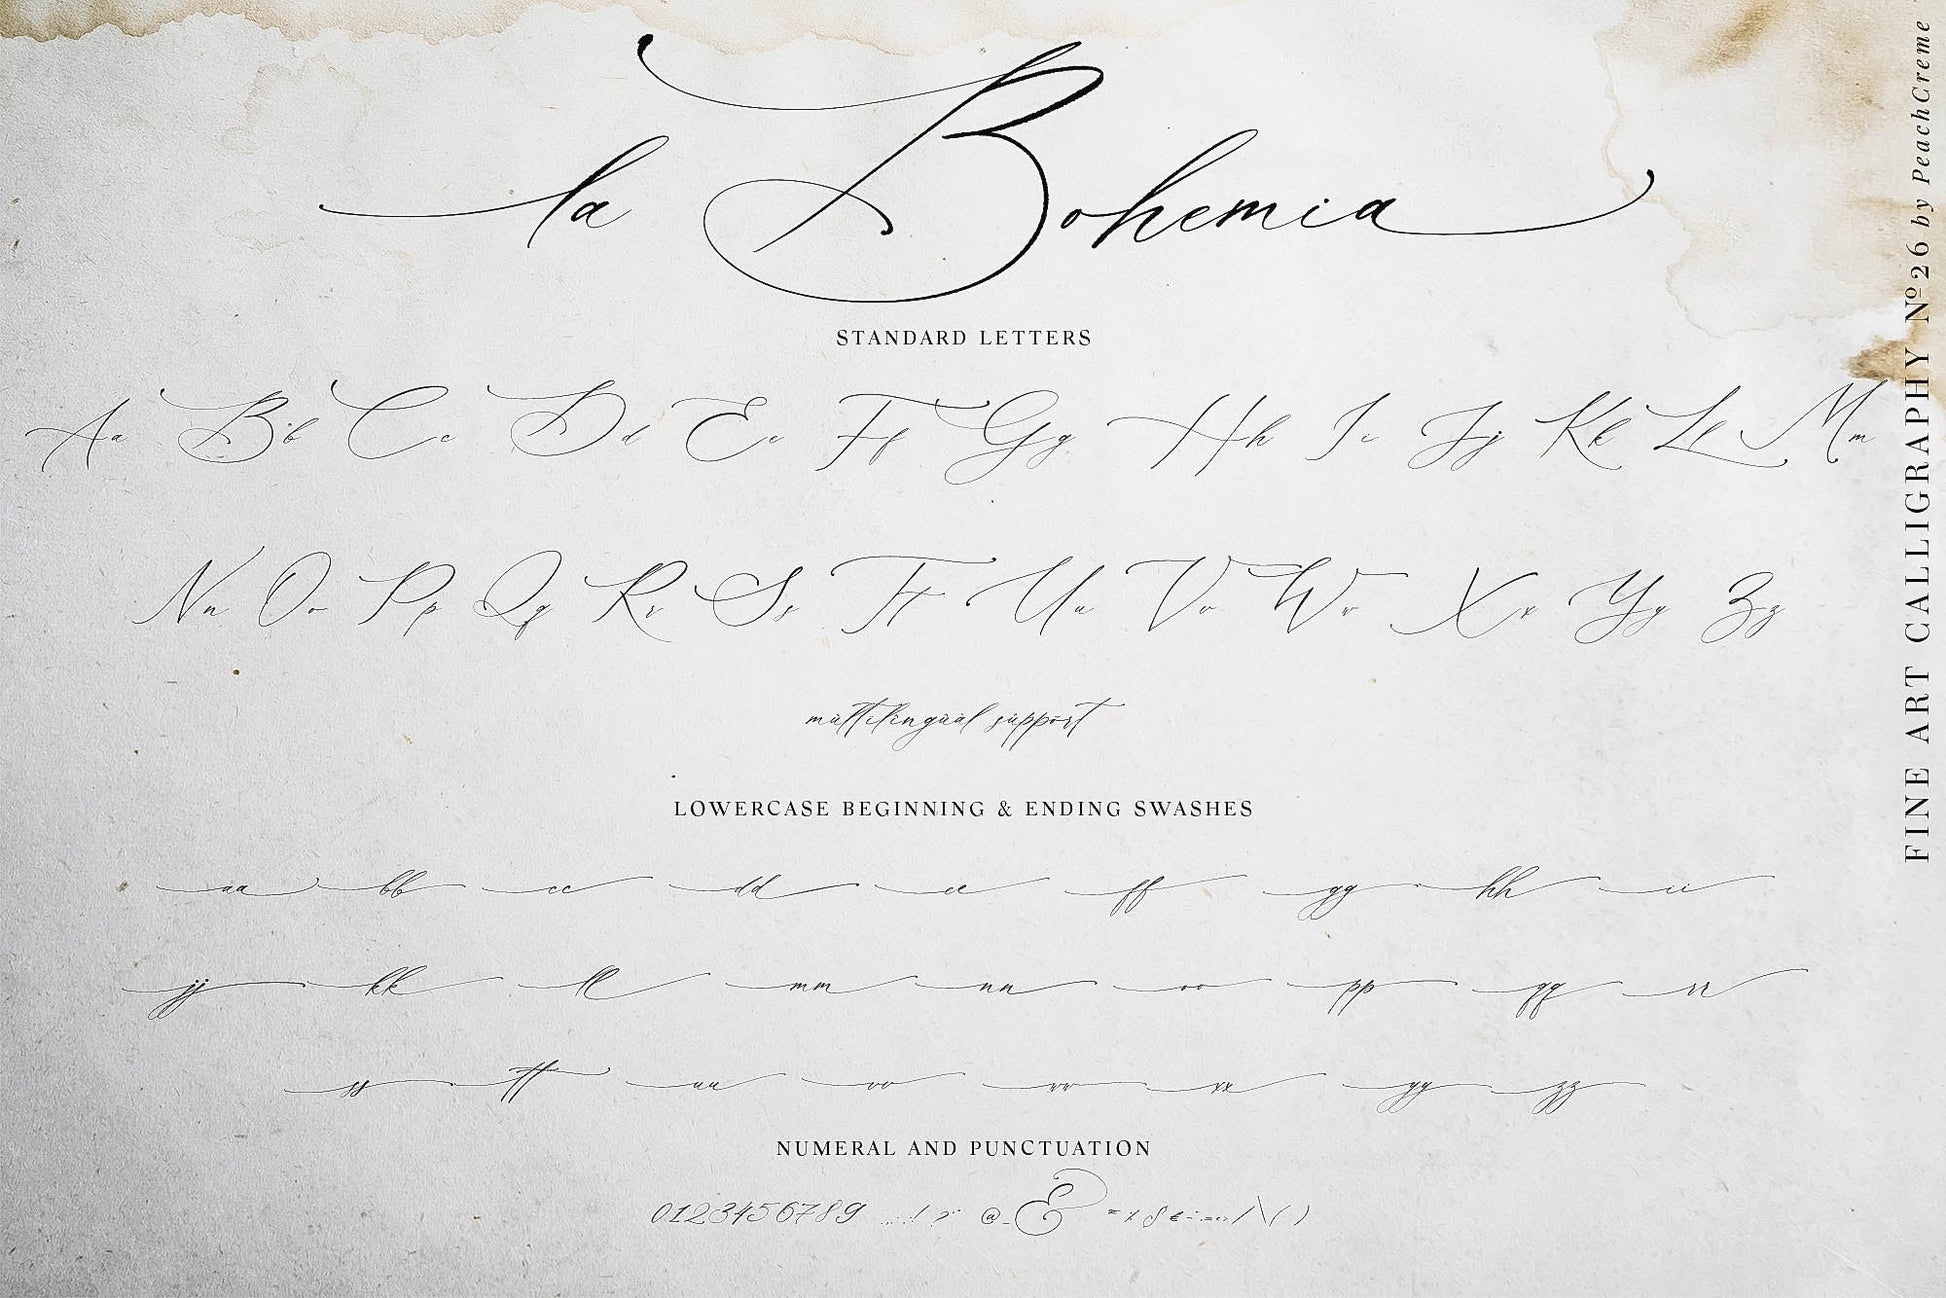 la Bohemia
STANDARD LETTERS
Aa Bb Cc Dd Ee Ff Gg Hh Ii Jj Kk Ll Mm
Nn Oo Pp Qq Rr Ss Tt Uu Vv Ww Xx Yy Zz
multilingual support
LOWERCASE BEGINNING & ENDING SWASHES
aa bb cc dd ee ff gg hh ii
jj kk ll mm nn oo pp qq rr
ss tt uu vv ww xx yy zz
NUMERAL AND PUNCTUATION
0123456789 @ & / \ ( )
FINE ART CALLIGRAPHY Nº26 by PeachCreme